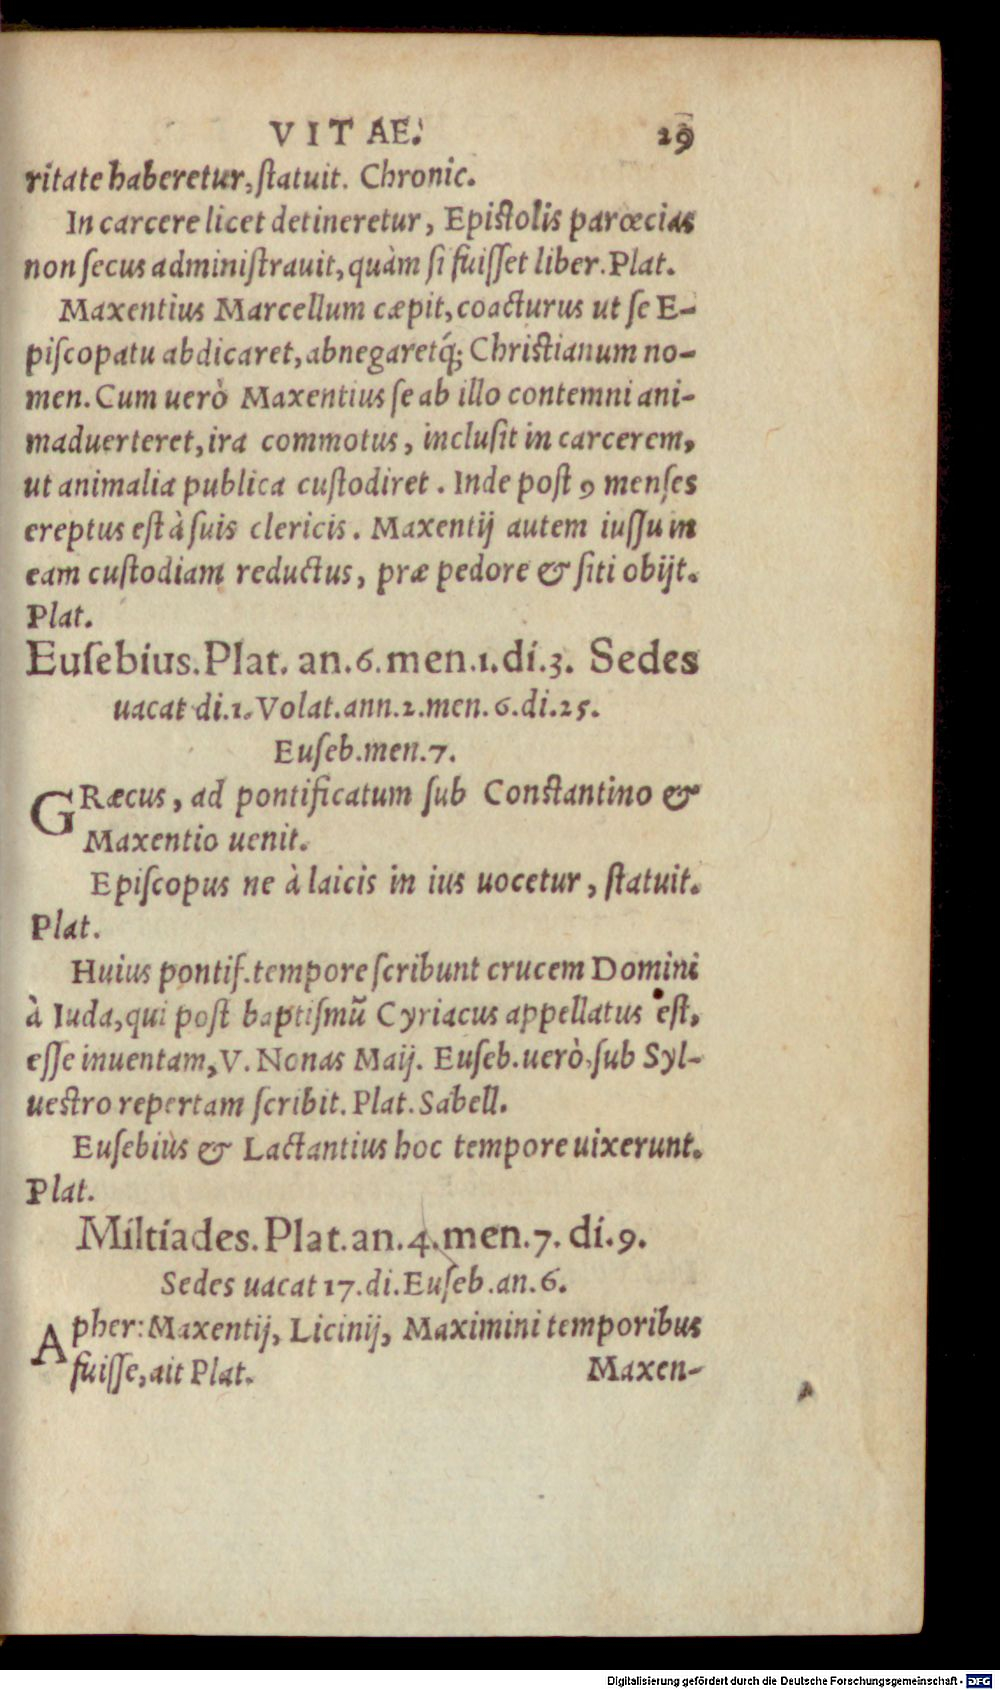 VITAE. 29
ritate haberetur, ſtatuit. Chronic.
In carcere licet detineretur, Epiſtolis parœcias
non ſecus adminiſtrauit, quàm ſi fuiſſet liber. Plat.
Maxentius Marcellum cæpit, coacturus ut ſe E-
piſcopatu abdicaret, abnegaretq́; Christianum no-
men. Cum uerò Maxentius ſe ab illo contemni ani-
maduerteret, ira commotus, incluſit in carcerem,
ut animalia publica cuſtodiret. Inde poſt 9 menſes
ereptus eſt à ſuis clericis. Maxentij autem iuſſu in
eam cuſtodiam reductus, præ pedore & ſiti obijt.
Plat.
Euſebius. Plat. an. 6. men. 1. di. 3. Sedes
uacat di. 1. Volat. ann. 2. men. 6. di. 25.
Euſeb. men. 7.
GRæcus, ad pontificatum ſub Conſtantino &
Maxentio uenit.
Epiſcopus ne à laicis in ius uocetur, ſtatuit.
Plat.
Huius pontif. tempore ſcribunt crucem Domini
à Iuda, qui poſt baptiſmũ Cyriacus appellatus eſt,
eſſe inuentam, V. Nonas Maij. Euſeb. uerò, ſub Syl-
ueſtro repertam ſcribit. Plat. Sabell.
Euſebius & Lactantius hoc tempore uixerunt.
Plat.
Miltiades. Plat. an. 4. men. 7. di. 9.
Sedes uacat 17. di. Euſeb. an. 6.
Apher: Maxentij, Licinij, Maximini temporibus
fuiſſe, ait Plat. Maxen-
Digitalisierung gefördert durch die Deutsche Forschungsgemeinschaft - DFG